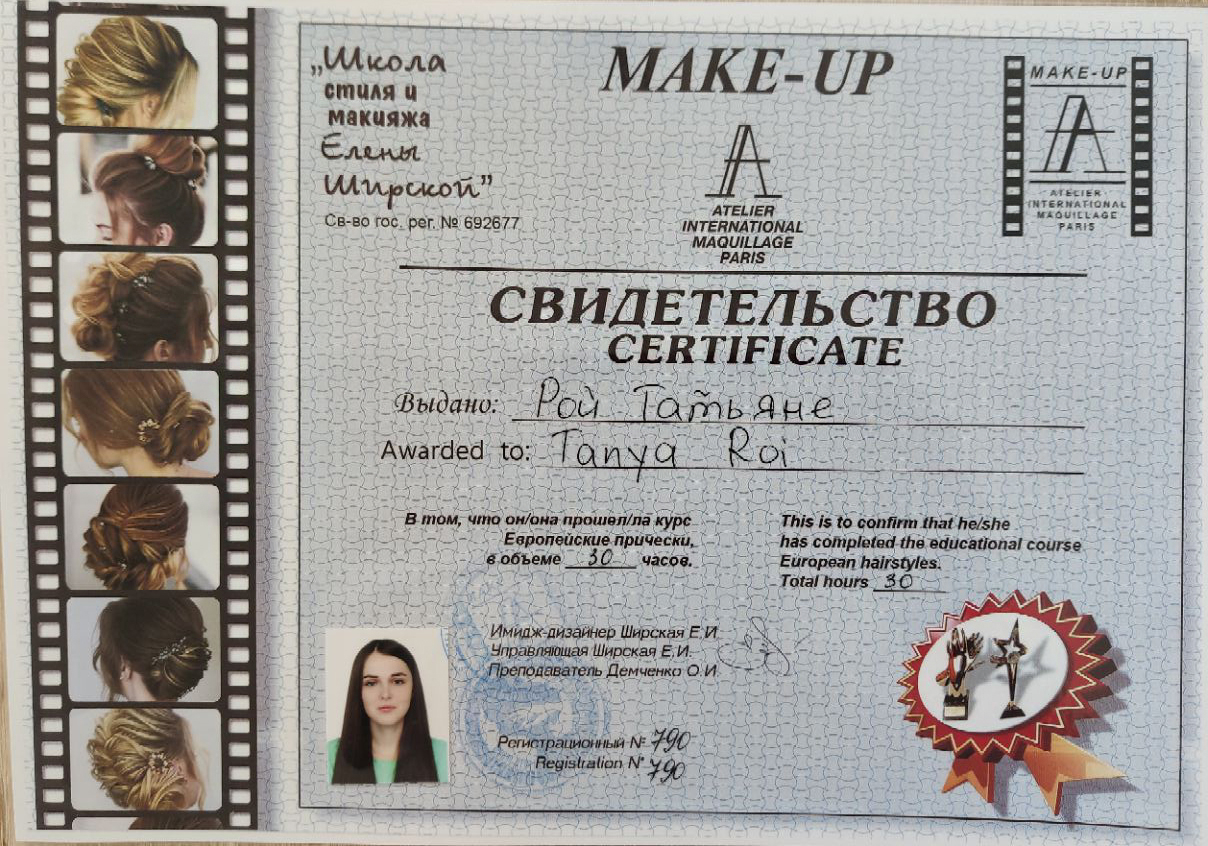 „Школа
стиля и
макияжа
Елены
Ширской”
Св-во гос. рег. № 692677
MAKE-UP
ATELIER
INTERNATIONAL
MAQUILLAGE
PARIS
MAKE-UP
ATELIER
INTERNATIONAL
MAQUILLAGE
PARIS
СВИДЕТЕЛЬСТВО
CERTIFICATE
Выдано: Рой Татьяне
Awarded to: Tanya Roi
В том, что он/она прошел/ла курс
Европейские прически,
в объеме 30 часов.
This is to confirm that he/she
has completed the educational course
European hairstyles.
Total hours 30
Имидж-дизайнер Ширская Е.И
Управляющая Ширская Е.И.
Преподаватель Демченко О.И
Регистрационный № 790
Registration N° 790